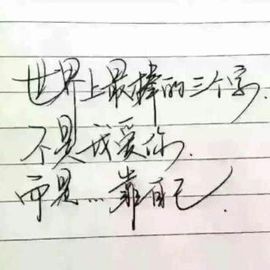 世界上最棒的三个字.
不是我爱你.
而是...靠自己.